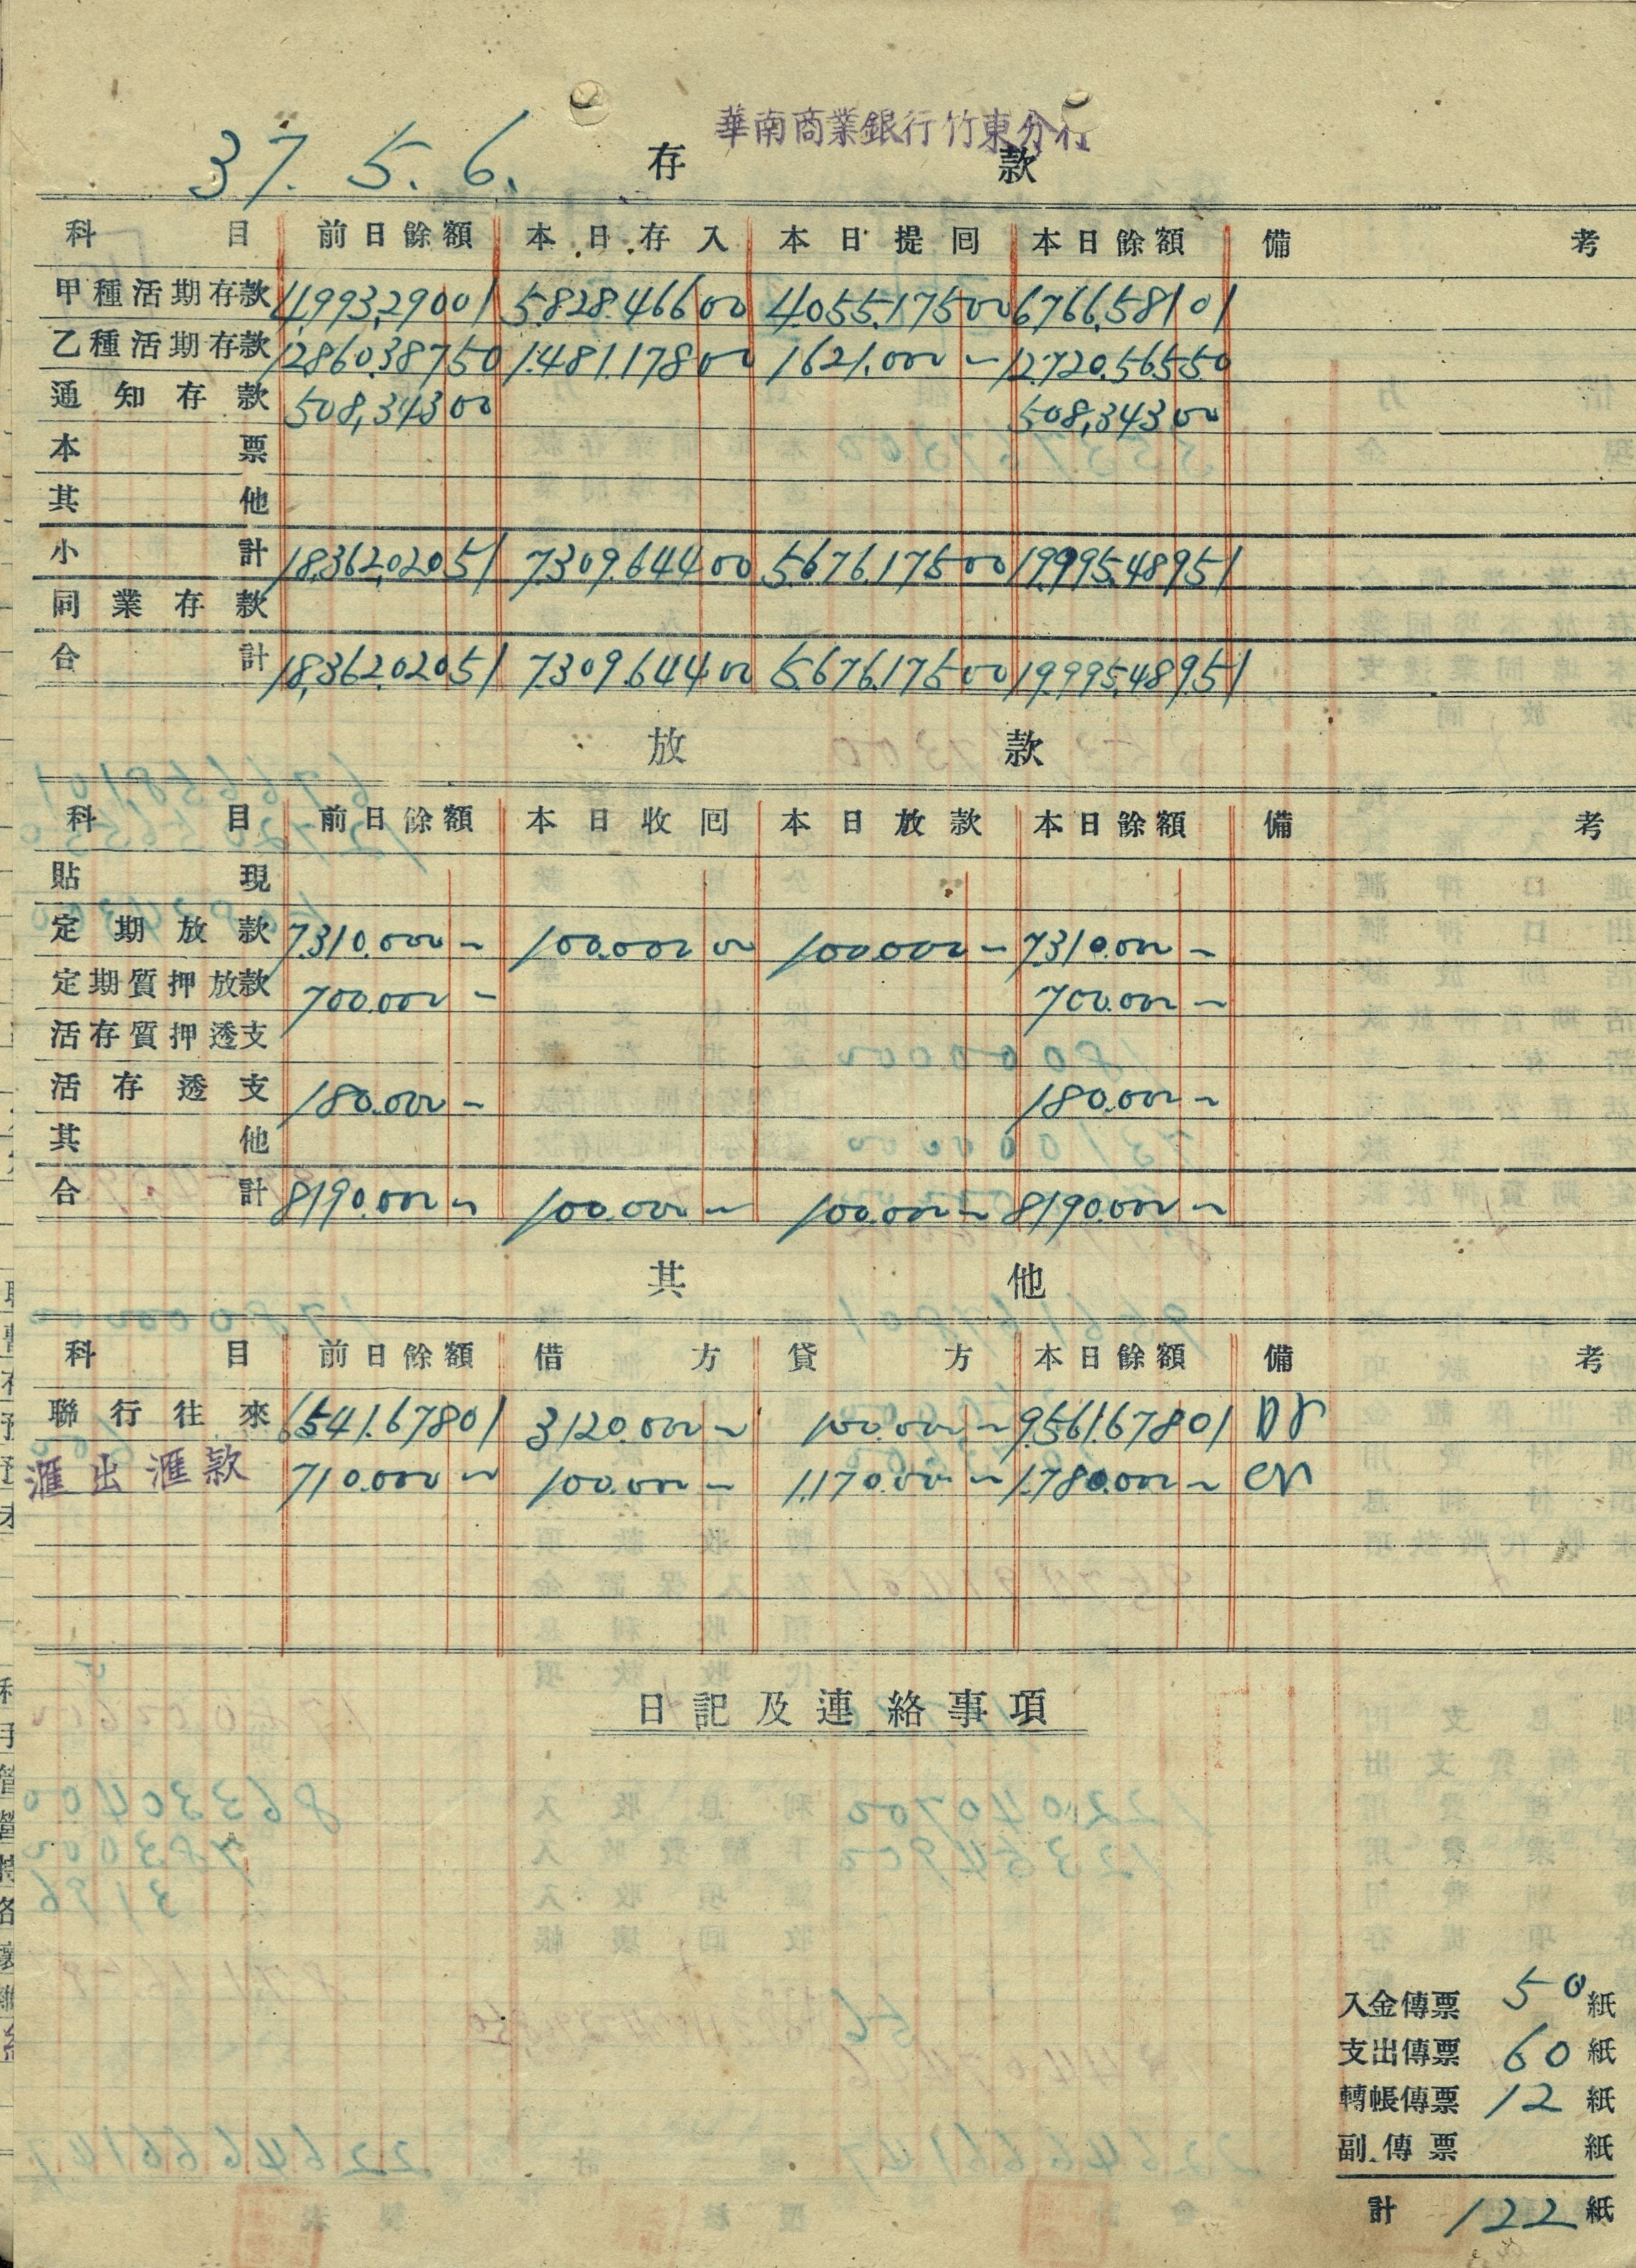 華南商業銀行竹東分行
37. 5. 6.
存款
科目 前日餘額 本日存入 本日提囘 本日餘額 備考
甲種活期存款 4,993,290 01 5.828.466 00 4.055.175 00 6.766.581 01
乙種活期存款 12.860.387 50 1.481.178 00 1.621.000 — 12.720.565 50
通知存款 508,343 00 508,343 00
本票
其他
小計 18,362,020 51 7.309.644 00 5.676.175 00 19.995.489 51
同業存款
合計 18,362.020 51 7.309.644 00 5.676.175 00 19.995.489 51
放款
科目 前日餘額 本日收囘 本日放款 本日餘額 備考
貼現
定期放款 7.310.000 — 100.000 00 100.000 — 7.310.000 —
定期質押放款 700.000 — 700.000 —
活存質押透支
活存透支 180.000 — 180.000 —
其他
合計 8190.000 — 100.000 — 100.000 — 8190.000 —
其他
科目 前日餘額 借方 貸方 本日餘額 備考
聯行往來 6.541.678 01 3.120.000 — 100.000 — 9.561.678 01 Dr
滙出滙款 710.000 — 100.000 — 1.170.000 — 1.780.000 — Cr
日記及連絡事項
入金傳票 50 紙
支出傳票 60 紙
轉帳傳票 12 紙
副傳票 紙
計 122 紙